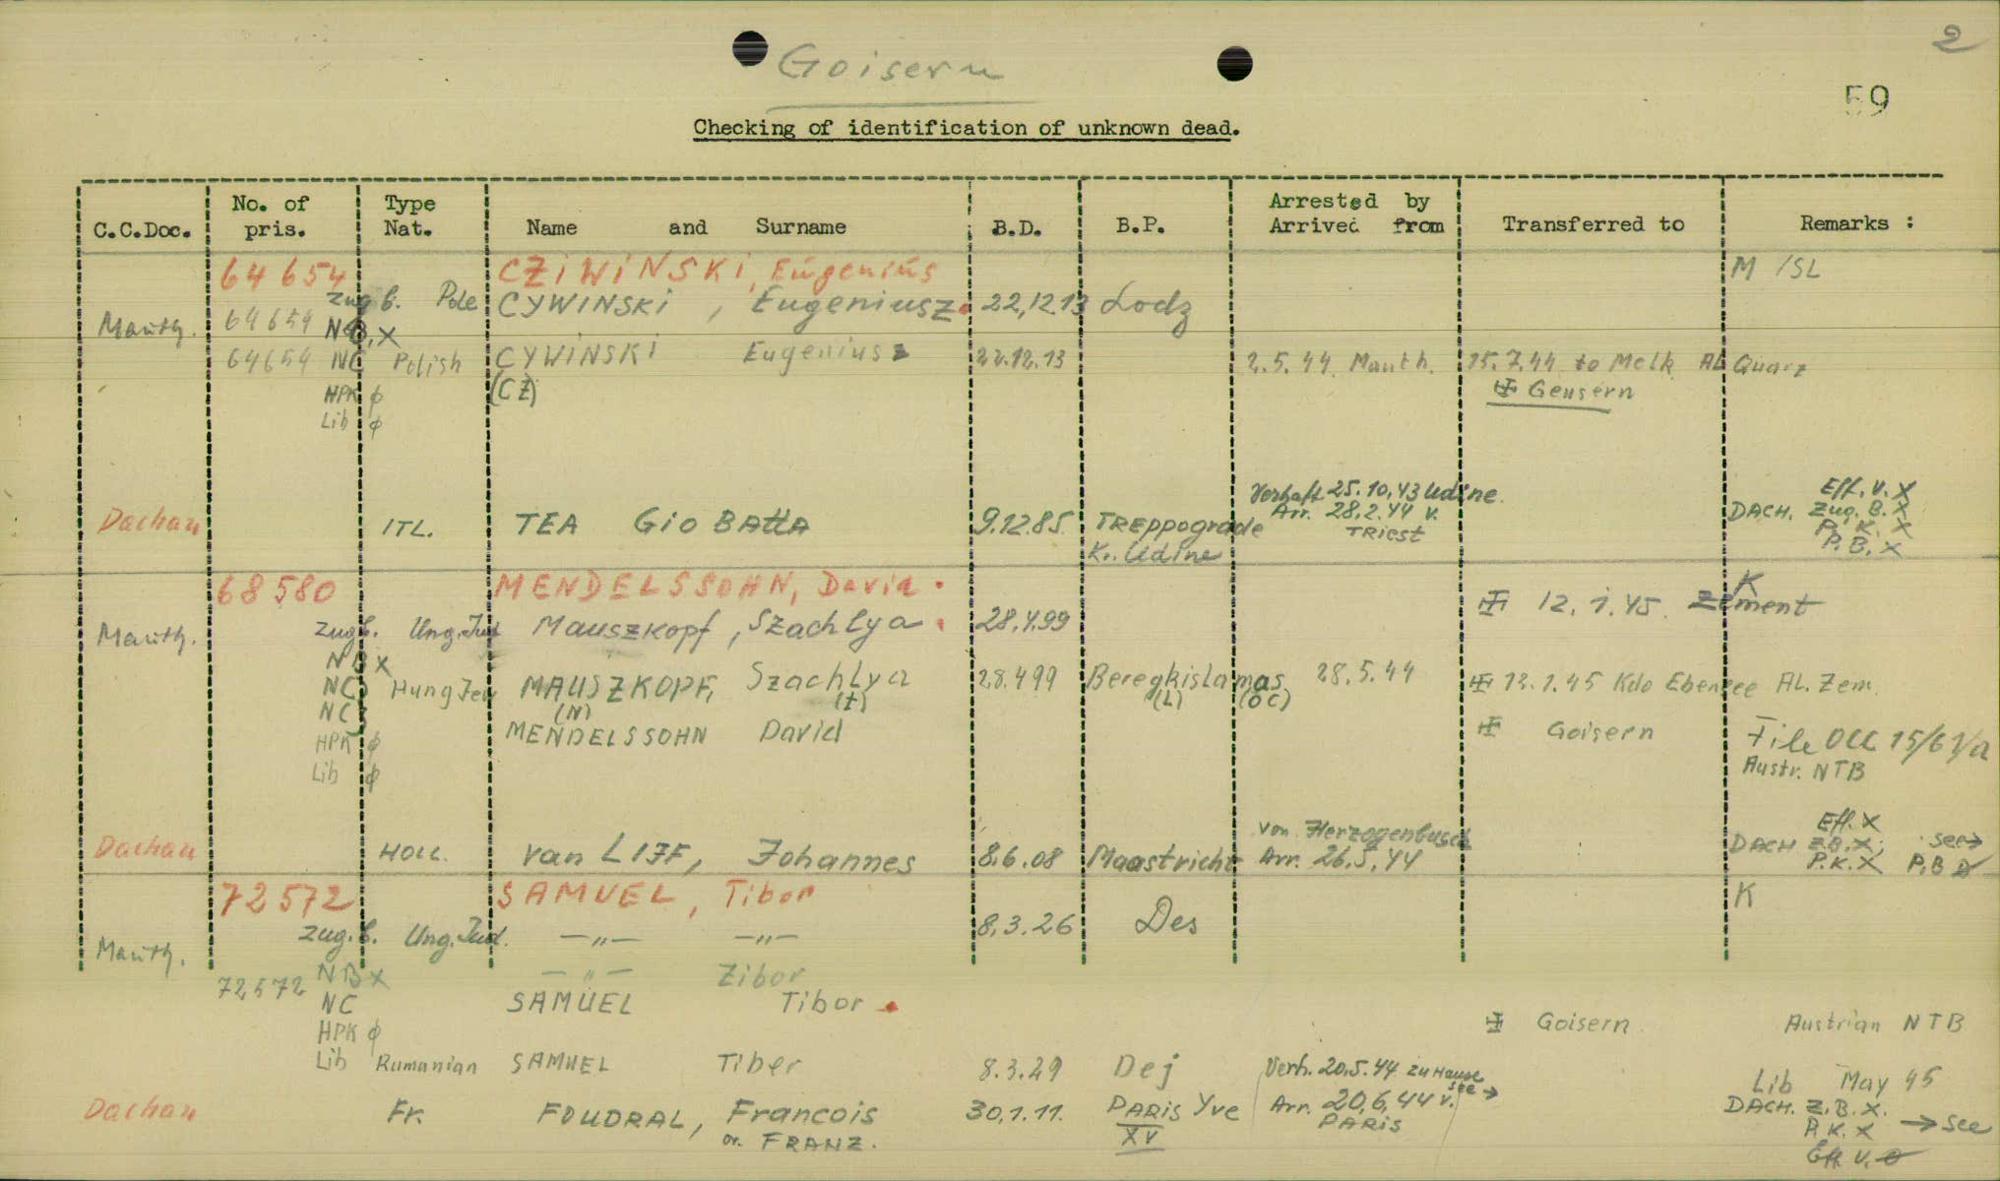 2
Goisern
59
Checking of identification of unknown dead.
C.C.Doc. No. of pris. Type Nat. Name and Surname B.D. B.P. Arrested by Arrived from Transferred to Remarks :
64 654 CZiWiNSKi, Eugenius M /SL
zug b. Pole CYWINSKi , Eugeniusz 22,12.13 Lodz
Mauth. 64654 NB,X
64654 NC Polish CYWiNSKi Eugeniusz 22.12.13 2.5.44 Mauth. 15.7.44 to Melk AL Quarz
HPK ϕ (CŻ) ✠ Geusern
Lib ϕ
Verhaft 25.10,43 Udine. Eff. V. X
Dachau ITL. TEA GiO BAttA 9.12.85 TREppogrande Arr. 28.2.44 v. DACH. Zug. B. X
Kr. Udine TRiest P. K. X
P. B. X
68580 MENDELSSOHN, David. K
✠ 12. 1. 45. Zement
Mauth. zugb. Ung.Jud Mauszkopf , Szachlya 28.4.99
NB X
NC Hung Jew MAUSZKOPF, Szachlya 28.4 99 Beregkislamas 28.5.44 ✠ 12.1.45 Kdo Ebensee AL. Zem.
NC (N) (t) (L) (OC)
HPK ϕ MENDELSSOHN David ✠ Goisern File OCC 15/61/a
Lib ϕ Austr. NTB
von Herzogenbusch Eff. X
Dachau HOLL. van LIJF, Johannes 8.6.08 Maastricht Arr. 26.5.44 DACH Z.B.X; see→
P.K. X P.B
72572 SAMUEL, Tibor K
zug. b. Ung. Jud. —〃— —〃— 8.3.26 Des
Mauth.
NB X —〃— Zibor
72,572 NC SAMUEL Tibor
HPK ϕ ✠ Goisern Austrian NTB
Lib Rumanian SAMUEL Tiber 8.3.29 Dej Verh. 20.5.44 zu Hause see → Lib May 45
Dachau Fr. FOUDRAL, Francois 30.1.11. PARis Yve Arr. 20,6,44 v. DACH. Z.B.X.
or. FRANZ. XV PARiS P.K. X → see
Eff V.